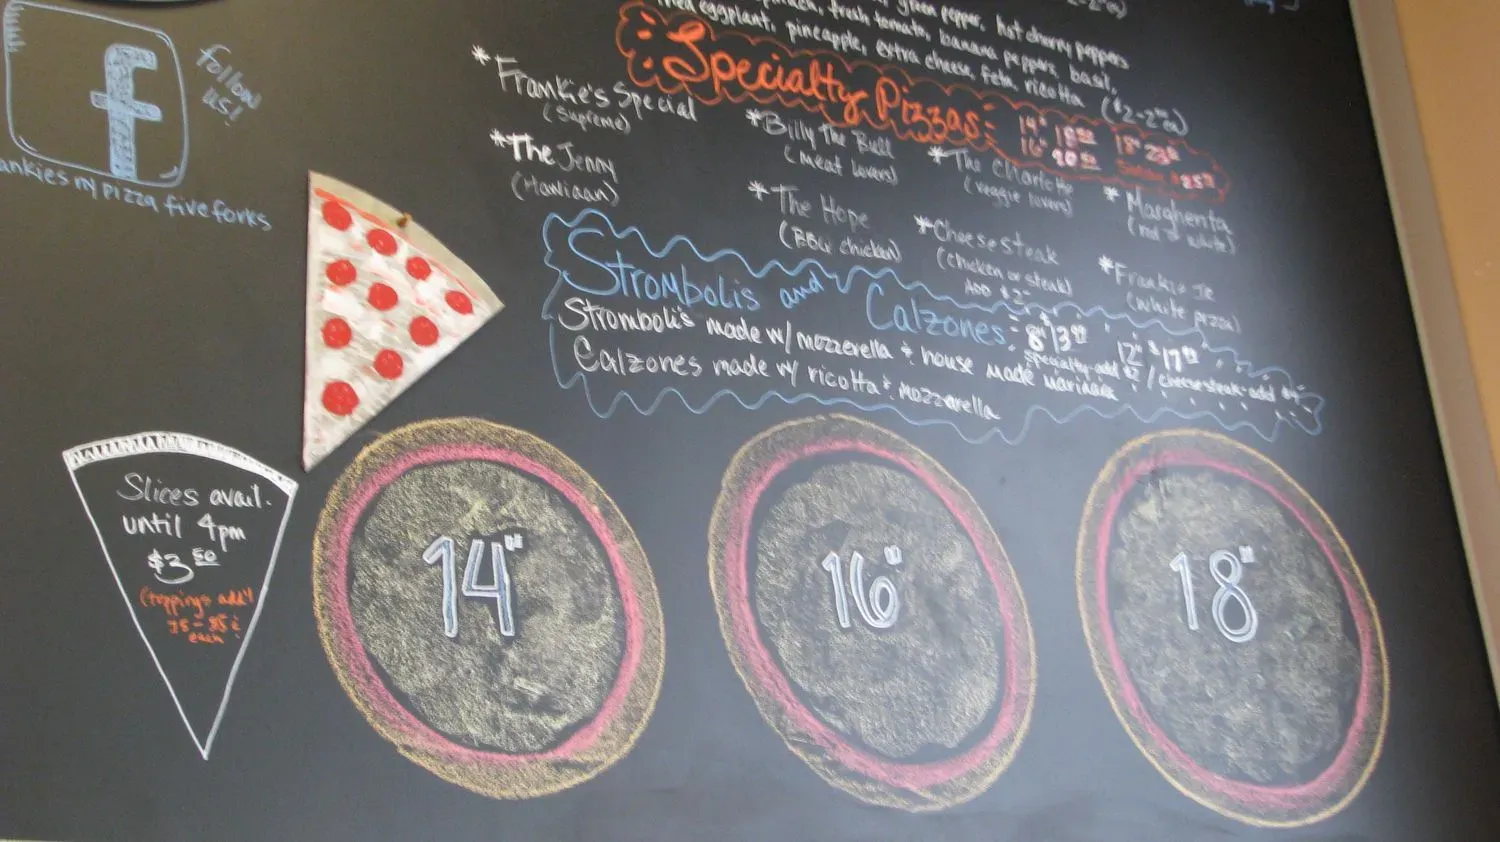 green pepper, hot cherry peppers
fresh tomato, banana peppers, basil,
eggplant, pineapple, extra cheese, feta, ricotta ($2-2
f
Follow
us!
ankies ny pizza fiveforks
Specialty Pizzas:
14"
16"
18"
* Frankie's Special
(Supreme)
* The Jenny
(Hawiaan)
* Billy The Bull
(meat lovers)
* The Hope
(BBQ chicken)
* The Charlotte
(veggie lovers)
* Cheesesteak
(chicken or steak)
ADD $2
* Margherita
(red or white)
* Frankie Jr
(white pizza)
Strombolis and Calzones: 8" 13 12" $17
specialty-add / cheesesteak-add
Stromboli's made w/ mozzerella & house made marinara
Calzones made w/ ricotta & mozzarella
Slices avail.
until 4pm
$3.50
(toppings add'l
75-95¢
each
14"
16"
18"